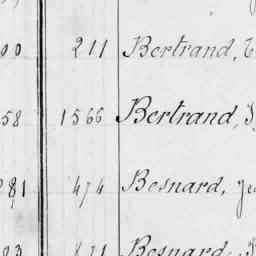 00 211 Bertrand,
58 1566 Bertrand,
281 474 Besnard,
93 871 Besnard,